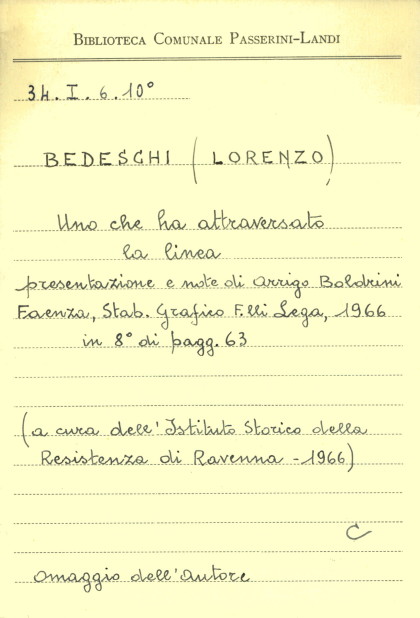 Biblioteca Comunale Passerini-Landi
34. I. 6. 10°
BEDESCHI (LORENZO)
Uno che ha attraversato
la linea
presentazione e note di Arrigo Boldrini
Faenza, Stab. Grafico F.lli Lega, 1966
in 8° di pagg. 63
(a cura dell'Istituto Storico della
Resistenza di Ravenna - 1966)
C
omaggio dell'autore